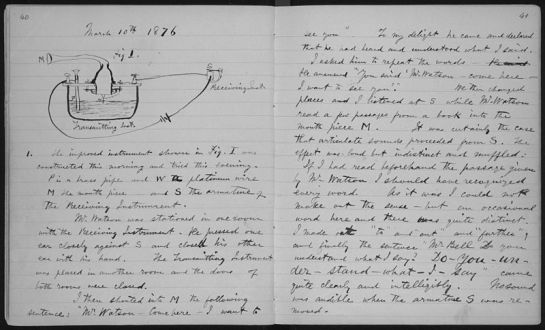 40
March 10th 1876
Fig 1.
M
S
P
W
V
Receiving Inst.
Transmitting Inst.
1. The improved instrument shown in Fig. I was
constructed this morning and tried this evening.
P is a brass pipe and W the platinum wire
M the mouth piece and S the armature of
the Receiving Instrument.
Mr. Watson was stationed in one room
with the Receiving Instrument. He pressed one
ear closely against S and closed his other
ear with his hand. The Transmitting Instrument
was placed in another room and the doors of
both rooms were closed.
I then shouted into M the following
sentence: "Mr. Watson - Come here - I want to
41
see you". To my delight he came and declared
that he had heard and understood what I said.
I asked him to repeat the words -
He answered "You said 'Mr. Watson - come here -
I want to see you'." We then changed
places and I listened at S while Mr. Watson
read a few passages from a book into the
mouth piece M. It was certainly the case
that articulate sounds proceeded from S. The
effect was loud but indistinct and muffled.
If I had read beforehand the passage given
by Mr. Watson I should have recognized
every word. As it was I could not
make out the sense - but an occasional
word here and there was quite distinct.
I made out "to" and "out" and "further";
and finally the sentence "Mr. Bell Do you
understand what I say? Do - you - un -
der - stand - what - I - say" came
quite clearly and intelligibly. No sound
was audible when the armature S was re-
moved.